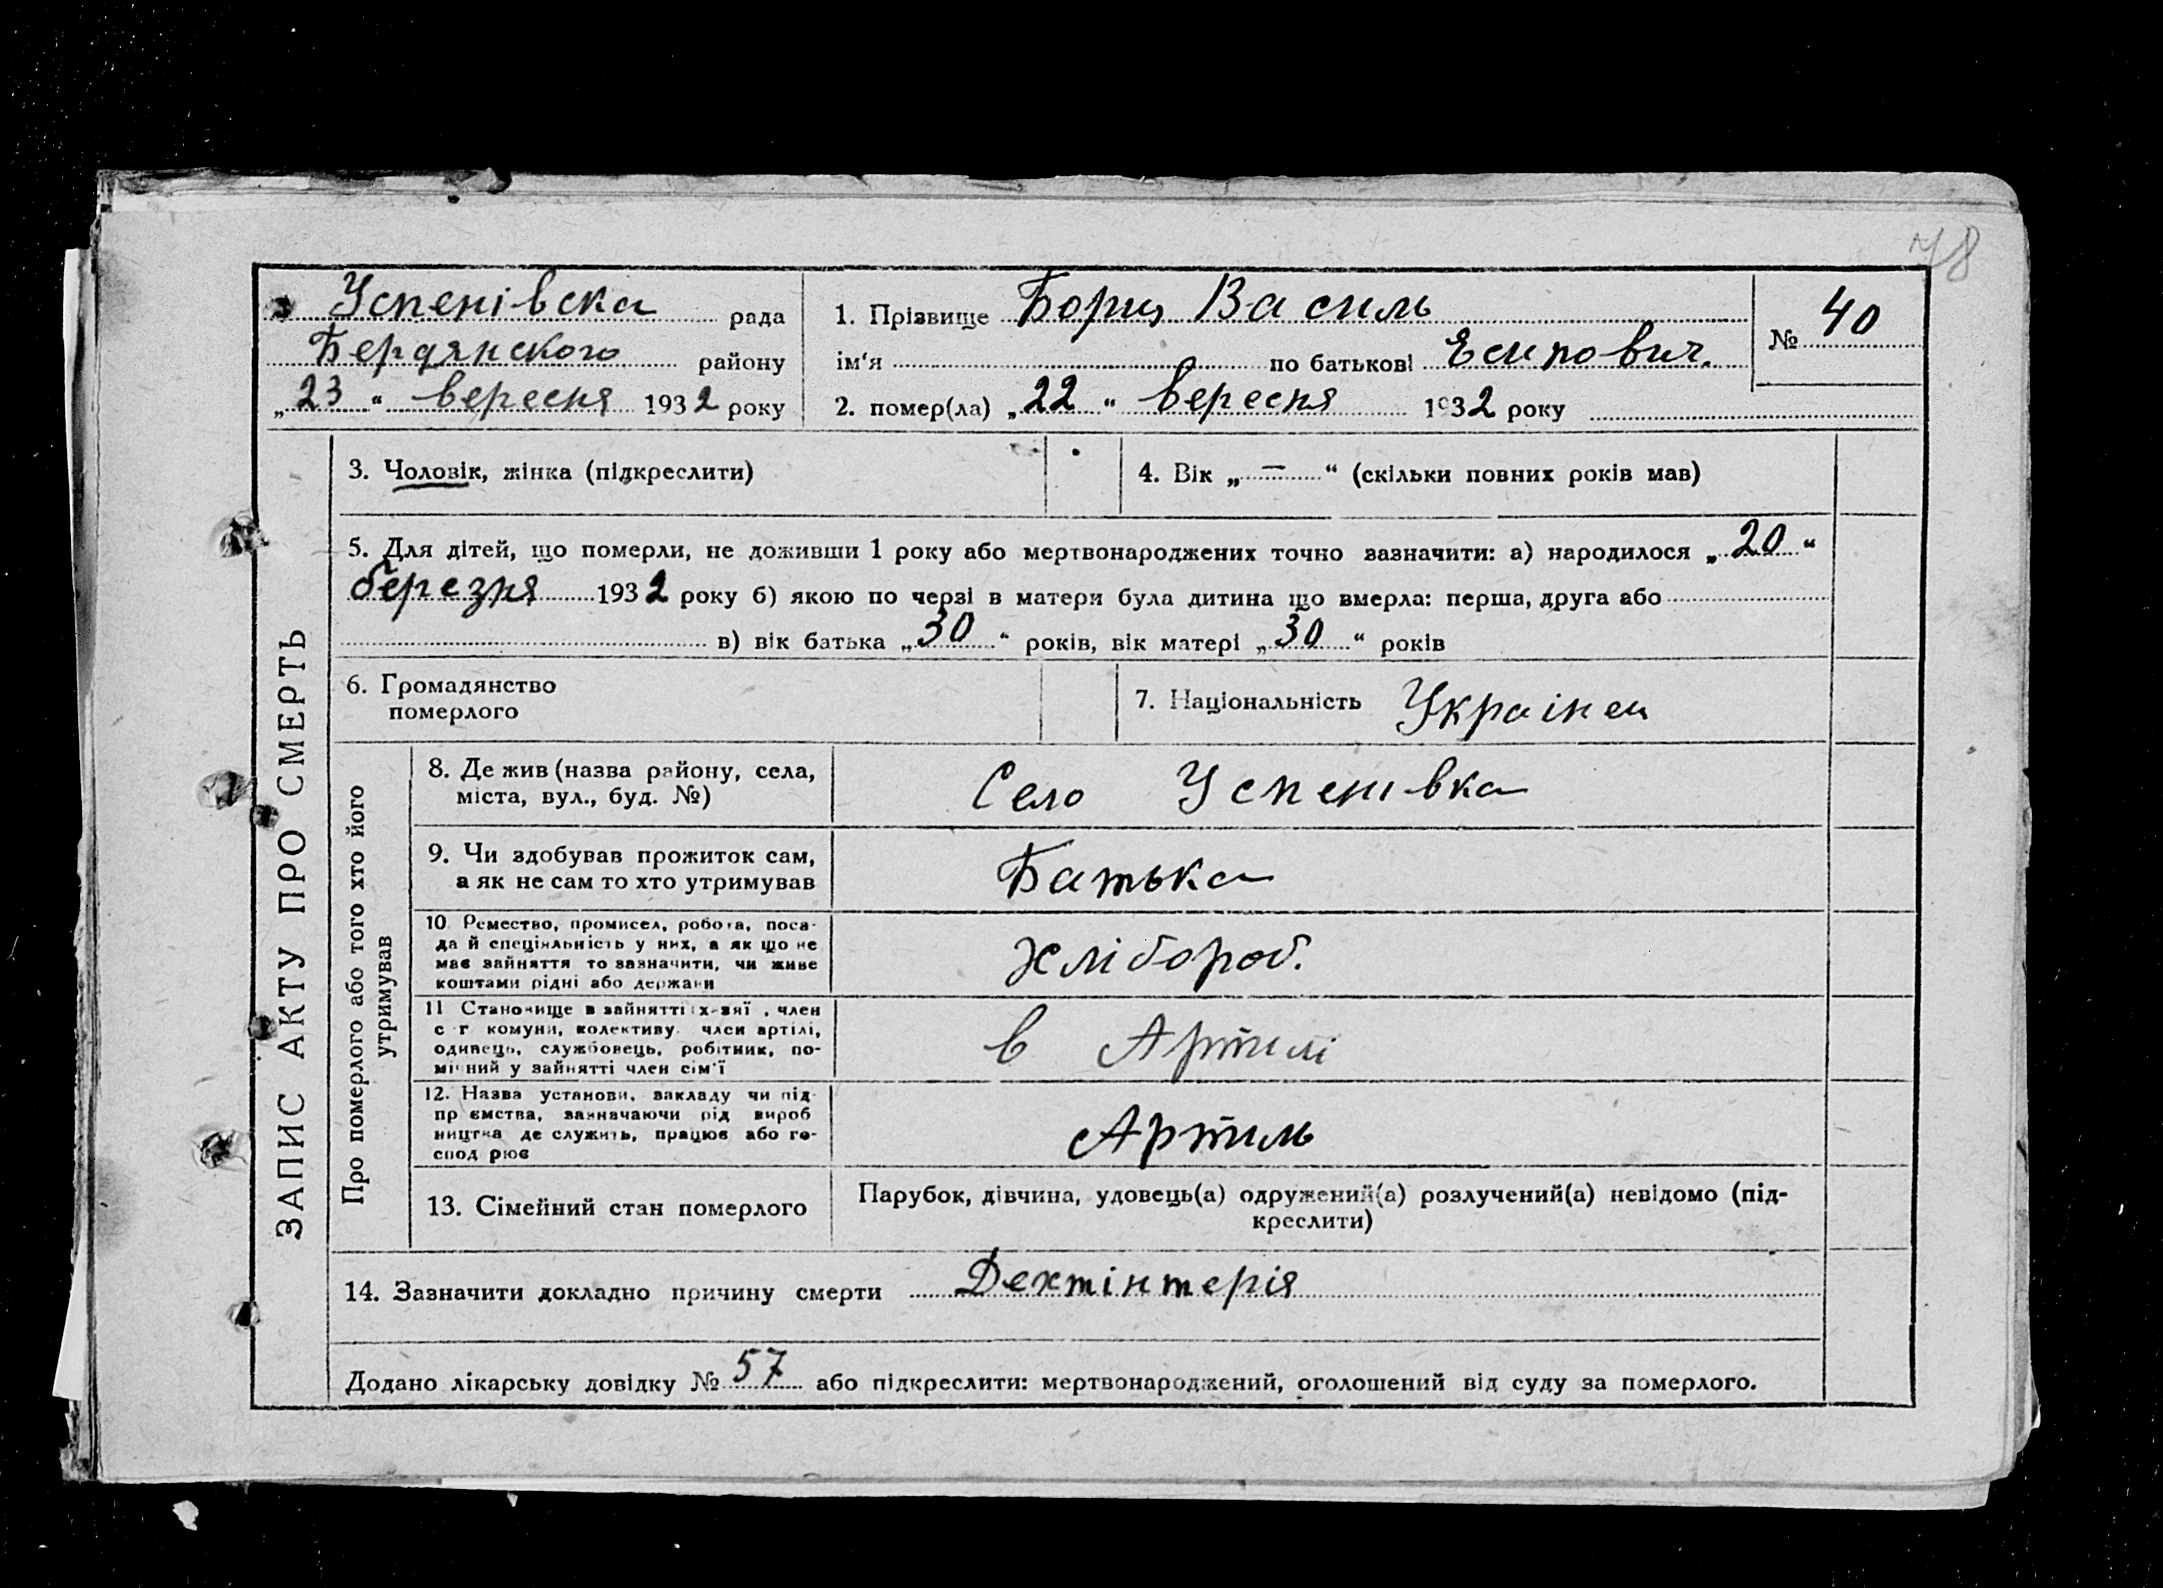 78
Успенівска рада
Бердянского району
„23“ вересня 1932 року
1. Прізвище Борщ Василь
ім‘я по батькові Есипович.
2. помер(ла) „22“ вересня 1932 року
№ 40
ЗАПИС АКТУ ПРО СМЕРТЬ
3. Чоловік, жінка (підкреслити)
4. Вік „—“ (скільки повних років мав)
5. Для дітей, що померли, не доживши 1 року або мертвонароджених точно зазначити: а) народилося „20“
березня 1932 року б) якою по черзі в матери була дитина що вмерла: перша, друга або
в) вік батька „30“ років, вік матері „30“ років
6. Громадянство
померлого
7. Національність Украінец
Про померлого або того хто його
утримував
8. Де жив (назва району, села,
міста, вул., буд. №)
Село Успенівка
9. Чи здобував прожиток сам,
а як не сам то хто утримував
Батька
10. Ремество, промисел, робота, поса-
да й спеціяльність у них, а як що не
має зайняття то зазначити, чи живе
коштами рідні або держави
Хлібороб.
11 Становище в зайнятті х-зяї , член
с г комуни, колективу. член артілі,
одинець, службовець, робітник, по-
мічний у зайнятті член сім'ї
в Артилі
12. Назва установи, закладу чи під
пр ємства, зазначаючи рід вироб
ництва де служить, працює або го-
спод рює
Артиль
13. Сімейний стан померлого
Парубок, дівчина, удовець(а) одружений(а) розлучений(а) невідомо (під-
креслити)
14. Зазначити докладно причину смерти Дехтінтерія
Додано лікарську довідку № 57 або підкреслити: мертвонароджений, оголошений від суду за померлого.